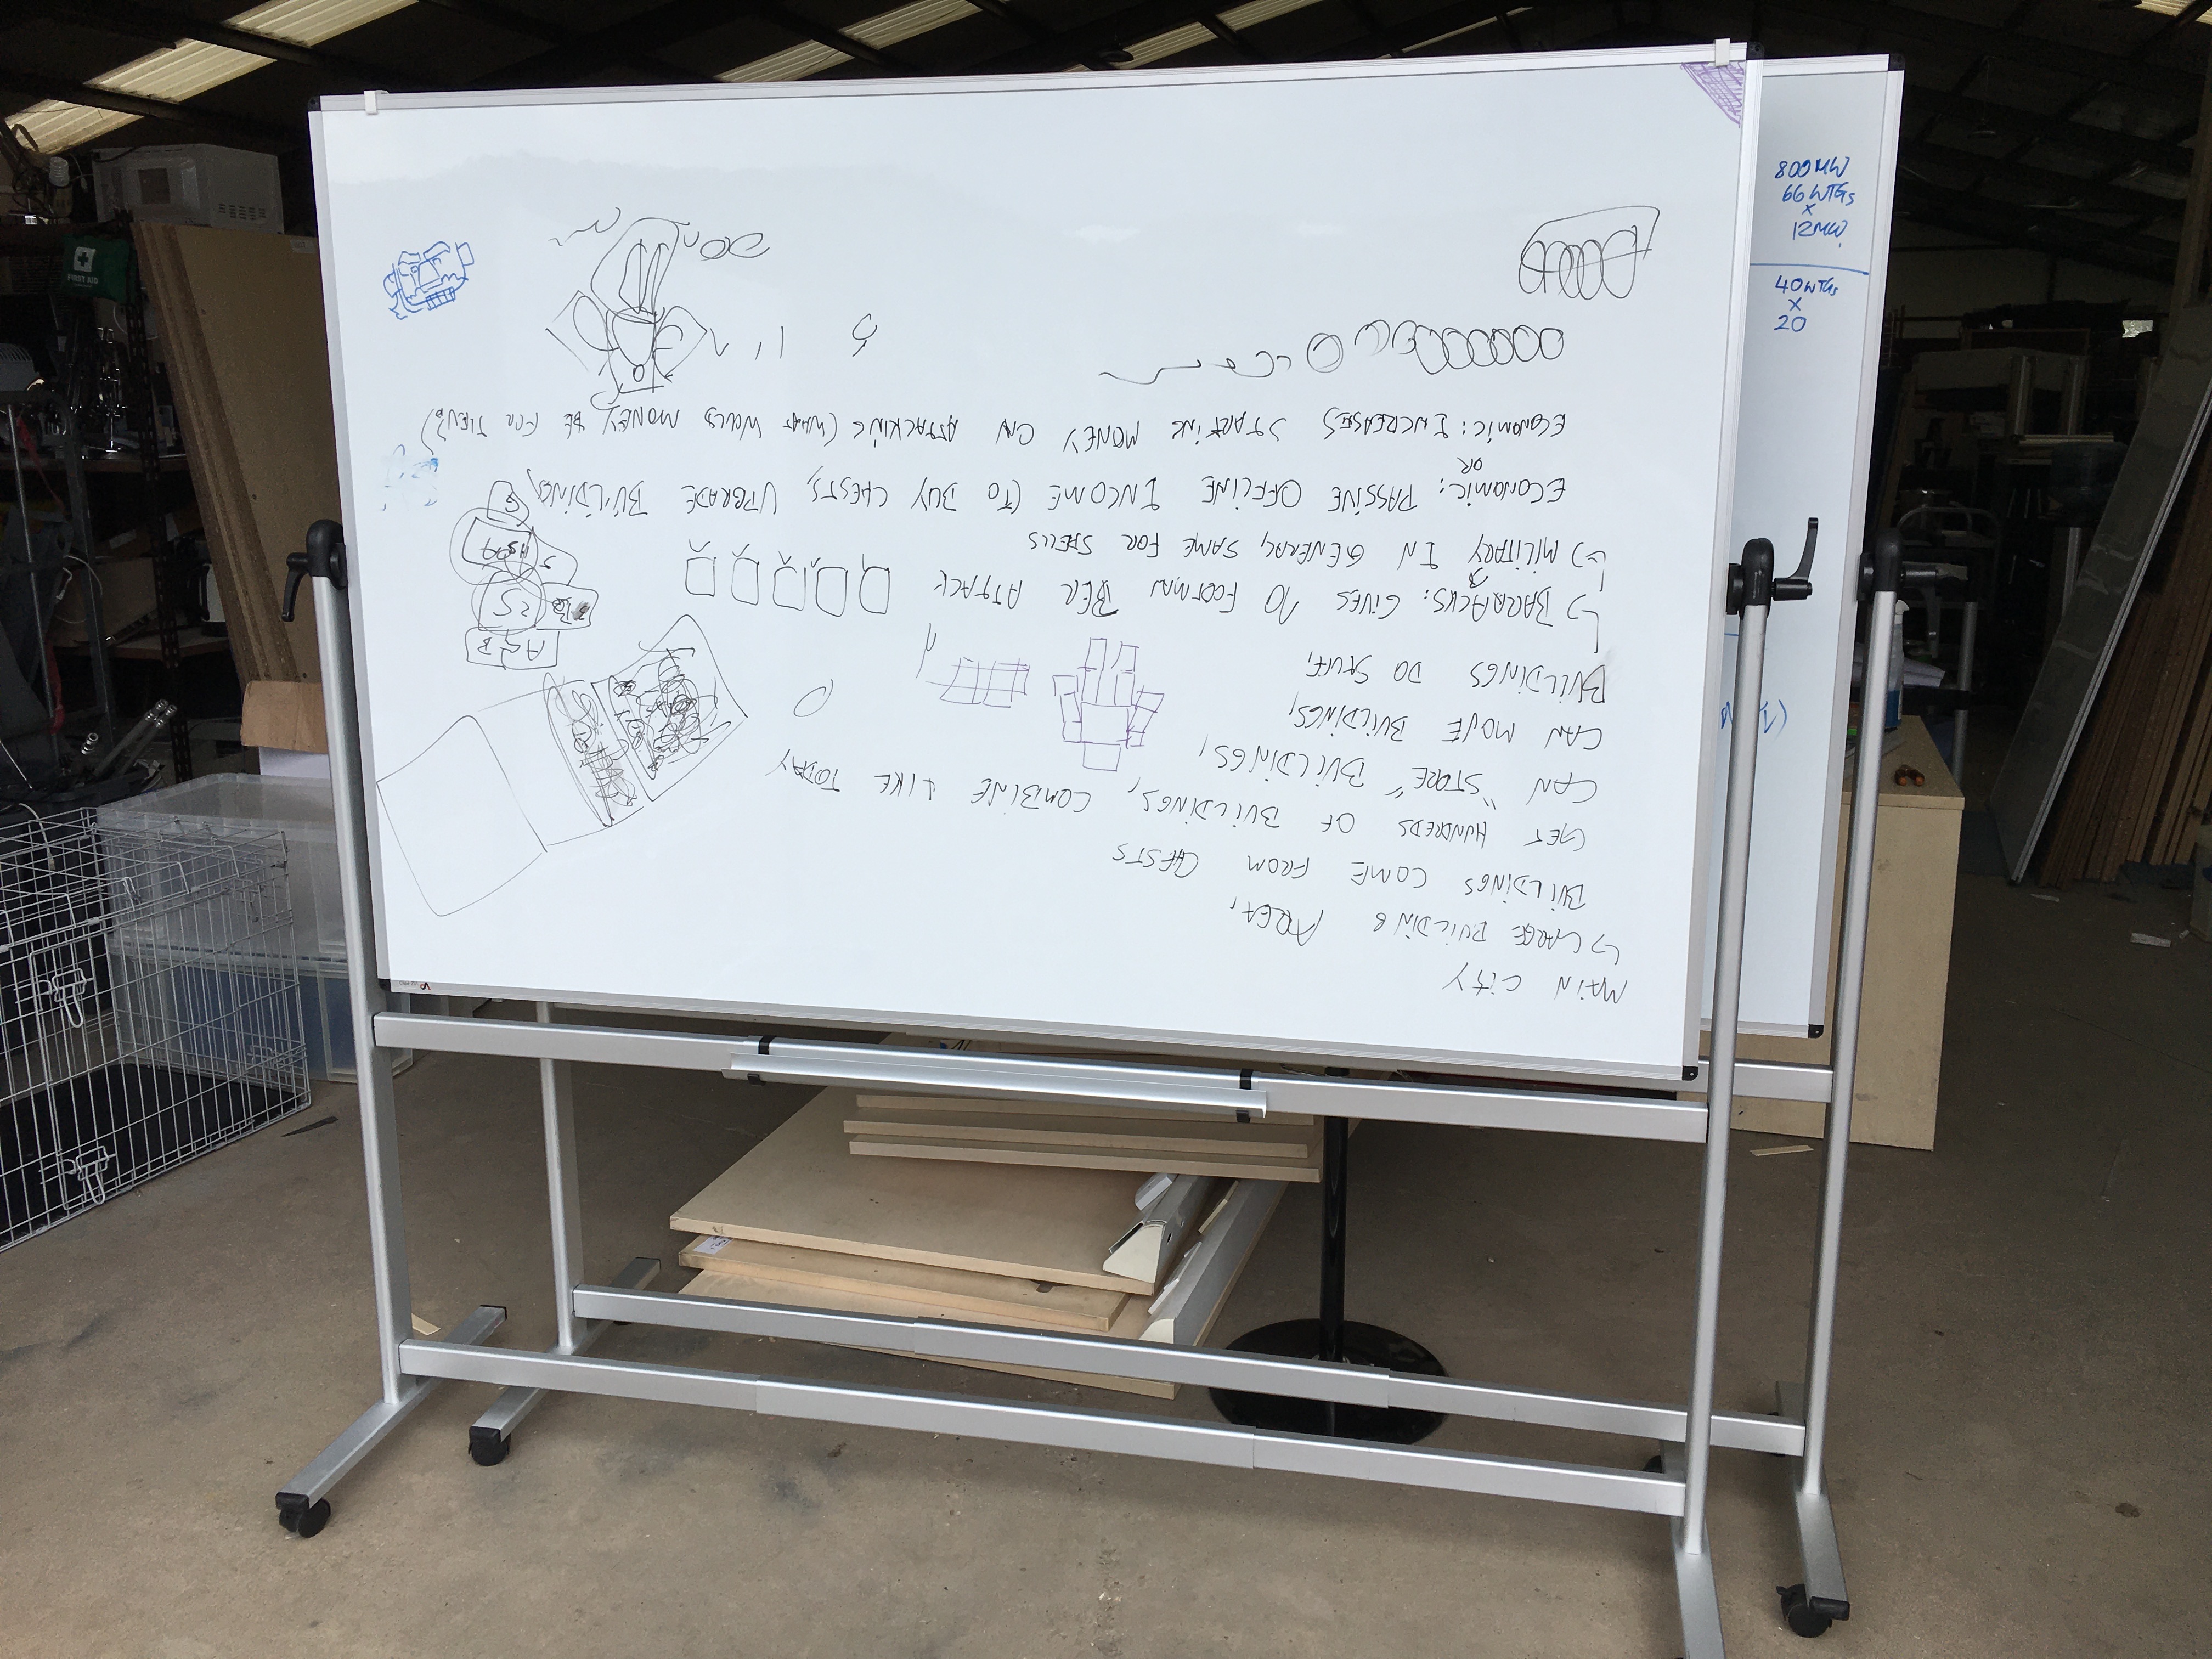 MAIN CITY
↳ LARGE BUILDING AREA,
BUILDINGS COME FROM CHESTS
GET HUNDREDS OF BUILDINGS, COMBINE LIKE TODAY
CAN "STORE" BUILDINGS,
CAN MOVE BUILDINGS,
BUILDINGS DO STUFF,
↳ BARRACKS: GIVES 10 FOOTMAN PER ATTACK
↳ MILITARY IN GENERAL, SAME FOR SPELLS
ECONOMIC: PASSIVE OFFLINE INCOME (TO BUY CHESTS, UPGRADE BUILDINGS)
OR
ECONOMIC: INCREASES STARTING MONEY ON ATTACKING (WHAT WOULD MONEY BE FOR THEN?)
A&B
25
800MW
66 WTGs
x
12MW
40 WTGs
x
20
FIRST AID